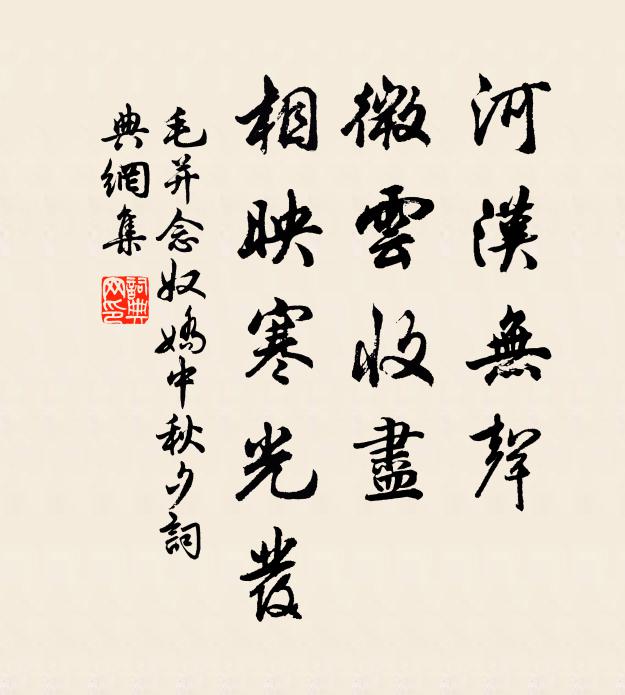 河漢無聲
微雲收盡
相映寒光發
毛并念奴嬌中秋夕詞
典網集
詞典網印